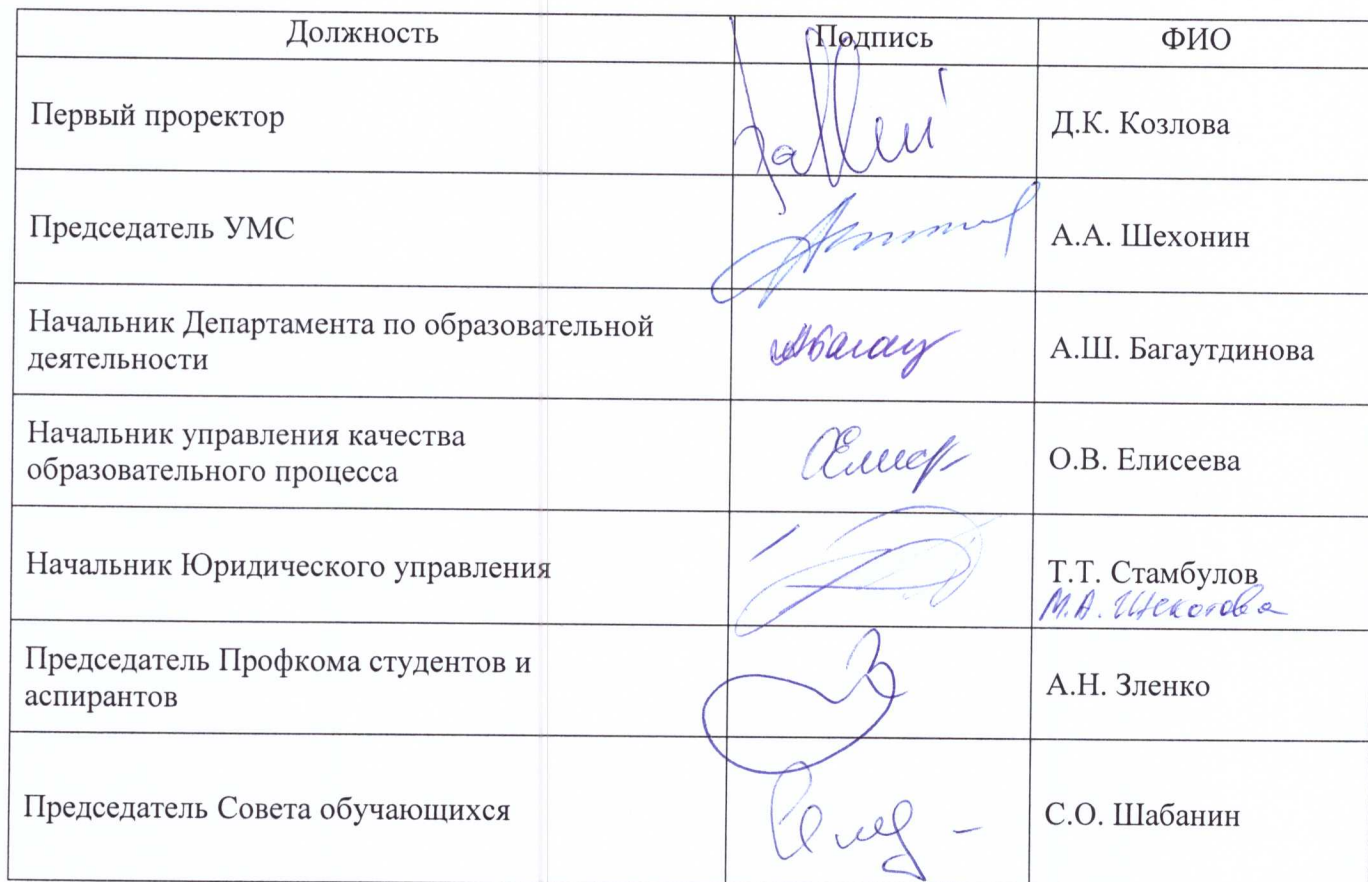 Должность Подпись ФИО
Первый проректор Д.К. Козлова
Председатель УМС А.А. Шехонин
Начальник Департамента по образовательной
деятельности А.Ш. Багаутдинова
Начальник управления качества
образовательного процесса О.В. Елисеева
Начальник Юридического управления Т.Т. Стамбулов
М.А. Щекотова
Председатель Профкома студентов и
аспирантов А.Н. Зленко
Председатель Совета обучающихся С.О. Шабанин